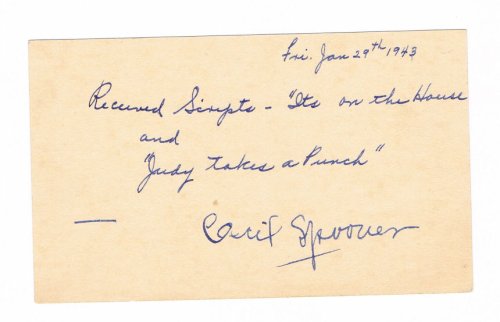 Fri. Jan 29th 1943
Received Scripts - "Its on the House
and
"Judy takes a Punch"
Cecil Spooner